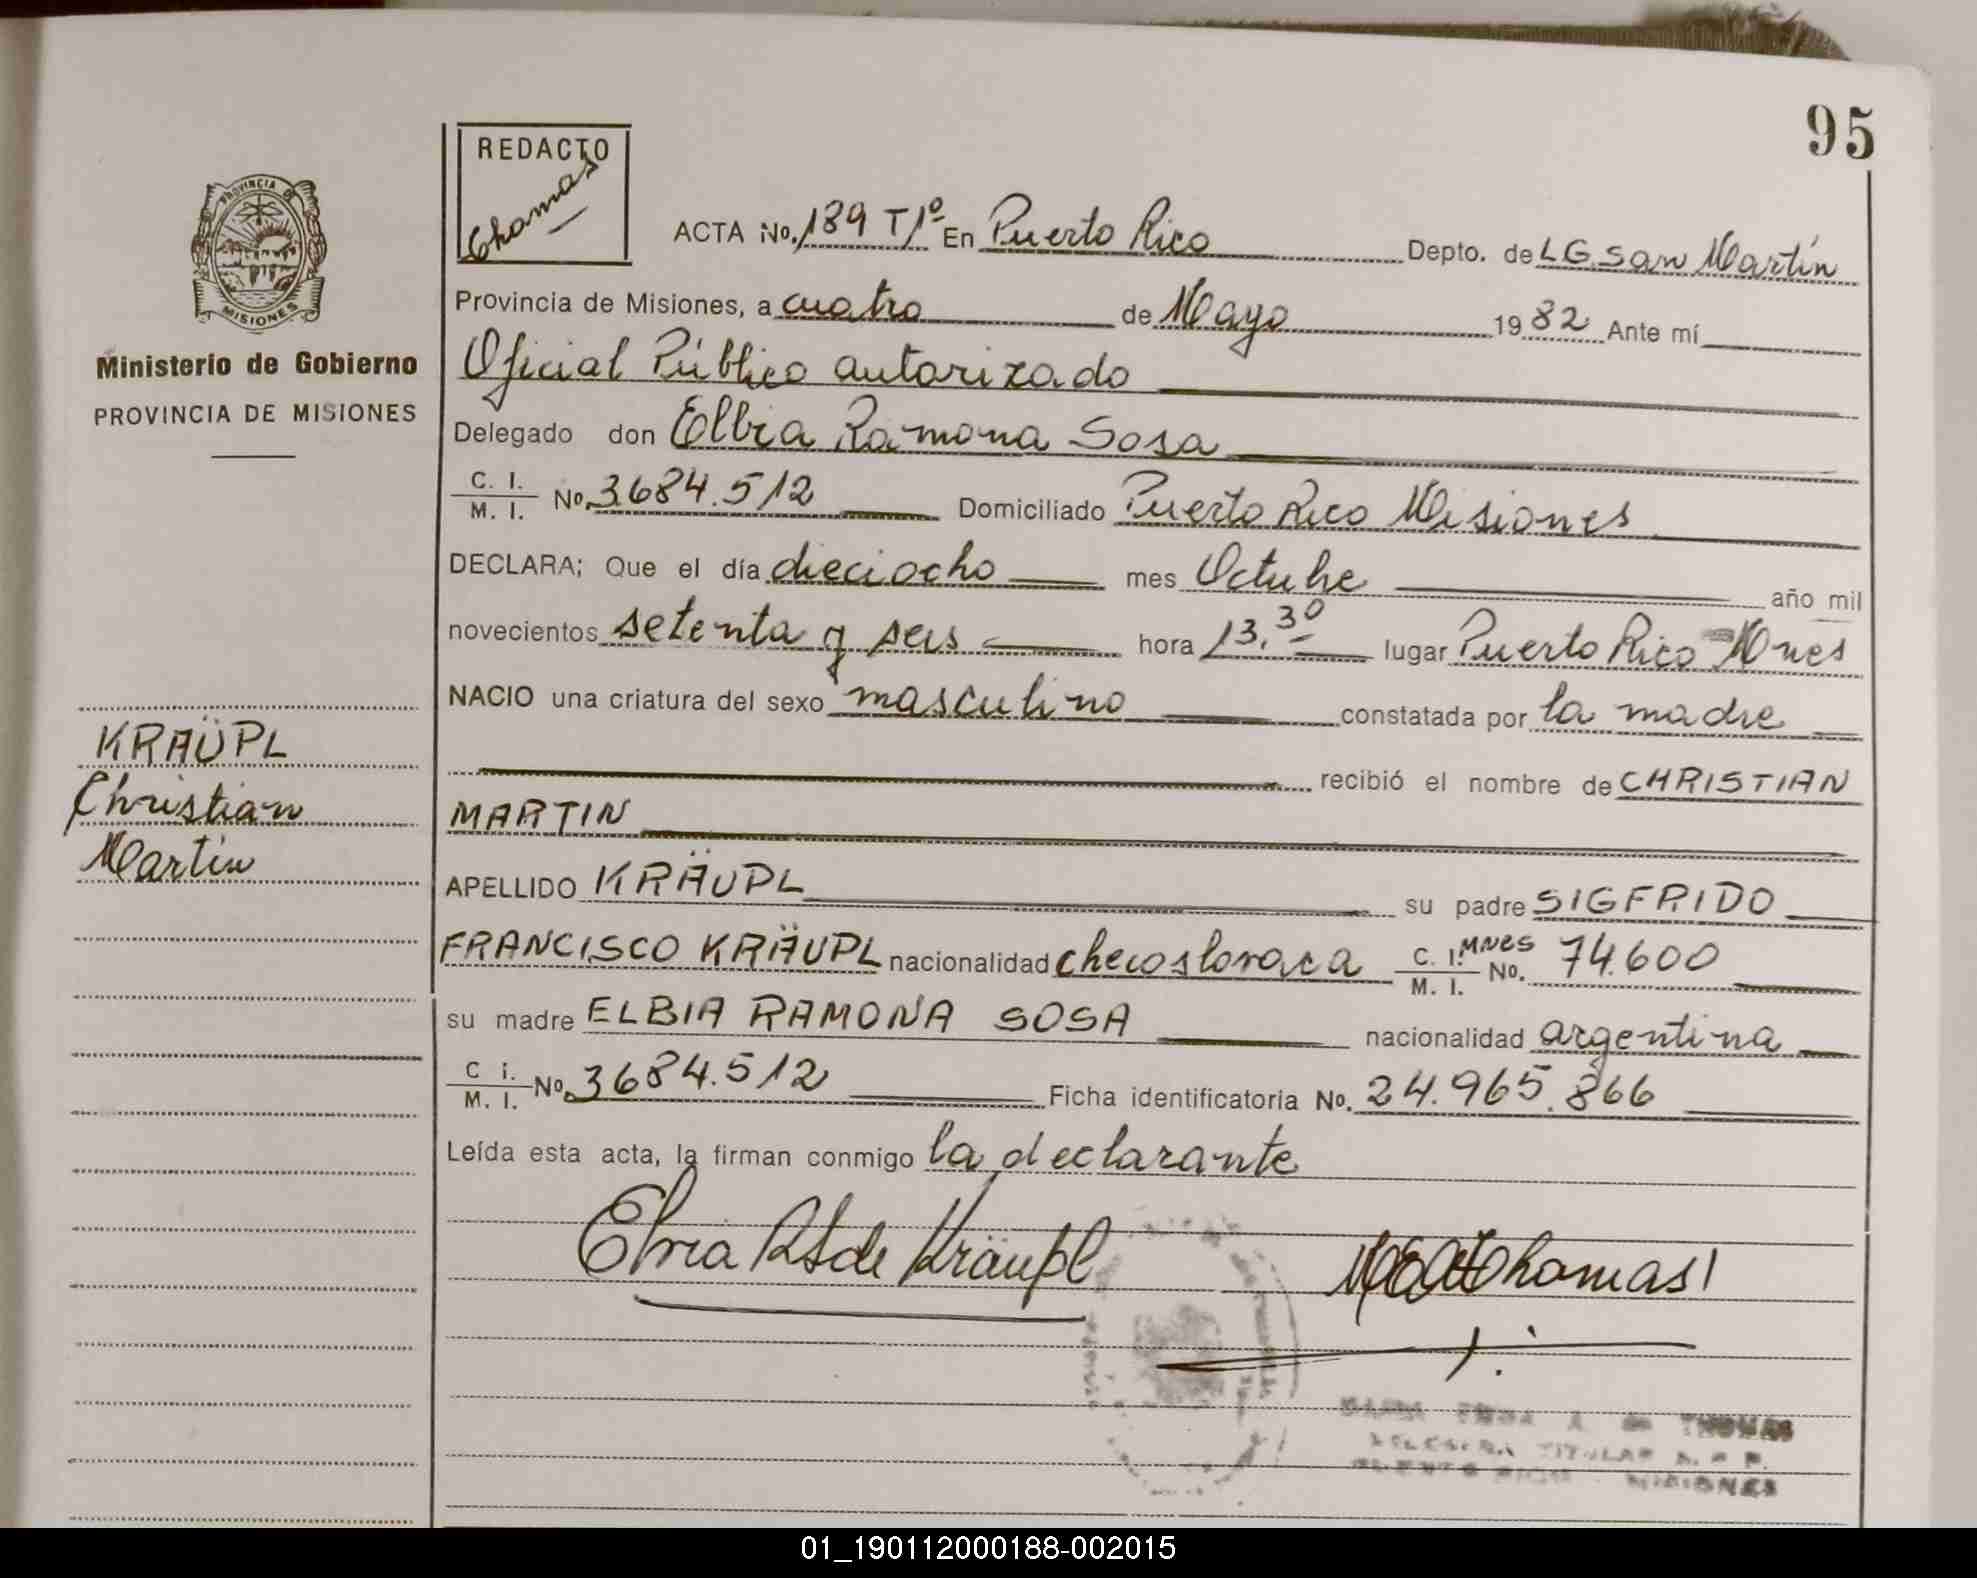 95
REDACTO
Thomas
PROVINCIA DE
MISIONES
Ministerio de Gobierno
PROVINCIA DE MISIONES
ACTA No. 189 T/1º En Puerto Rico Depto. de L G. San Martín
Provincia de Misiones, a cuatro de Mayo 1982 Ante mí
Oficial Público autorizado
Delegado don Elbia Ramona Sosa
C. I.
M. I. No. 3684.512 Domiciliado Puerto Rico Misiones
DECLARA; Que el día dieciocho mes Octubre año mil
novecientos setenta y seis hora 13.30 lugar Puerto Rico Mnes
NACIO una criatura del sexo masculino constatada por la madre
recibió el nombre de CHRISTIAN
MARTIN
APELLIDO KRÄUPL su padre SIGFRIDO
FRANCISCO KRÄUPL nacionalidad checoslovaca C. I. MNES
M. I. No. 74.600
su madre ELBIA RAMONA SOSA nacionalidad argentina
C i.
M. I. No. 3684.512 Ficha identificatoria No. 24.965.866
Leída esta acta, la firman conmigo la declarante
KRAÜPL
Christian
Martin
Elvia RS de Kräupl
Thomas
de THOMAS
TITULAR
PUERTO RICO - MISIONES
01_190112000188-002015